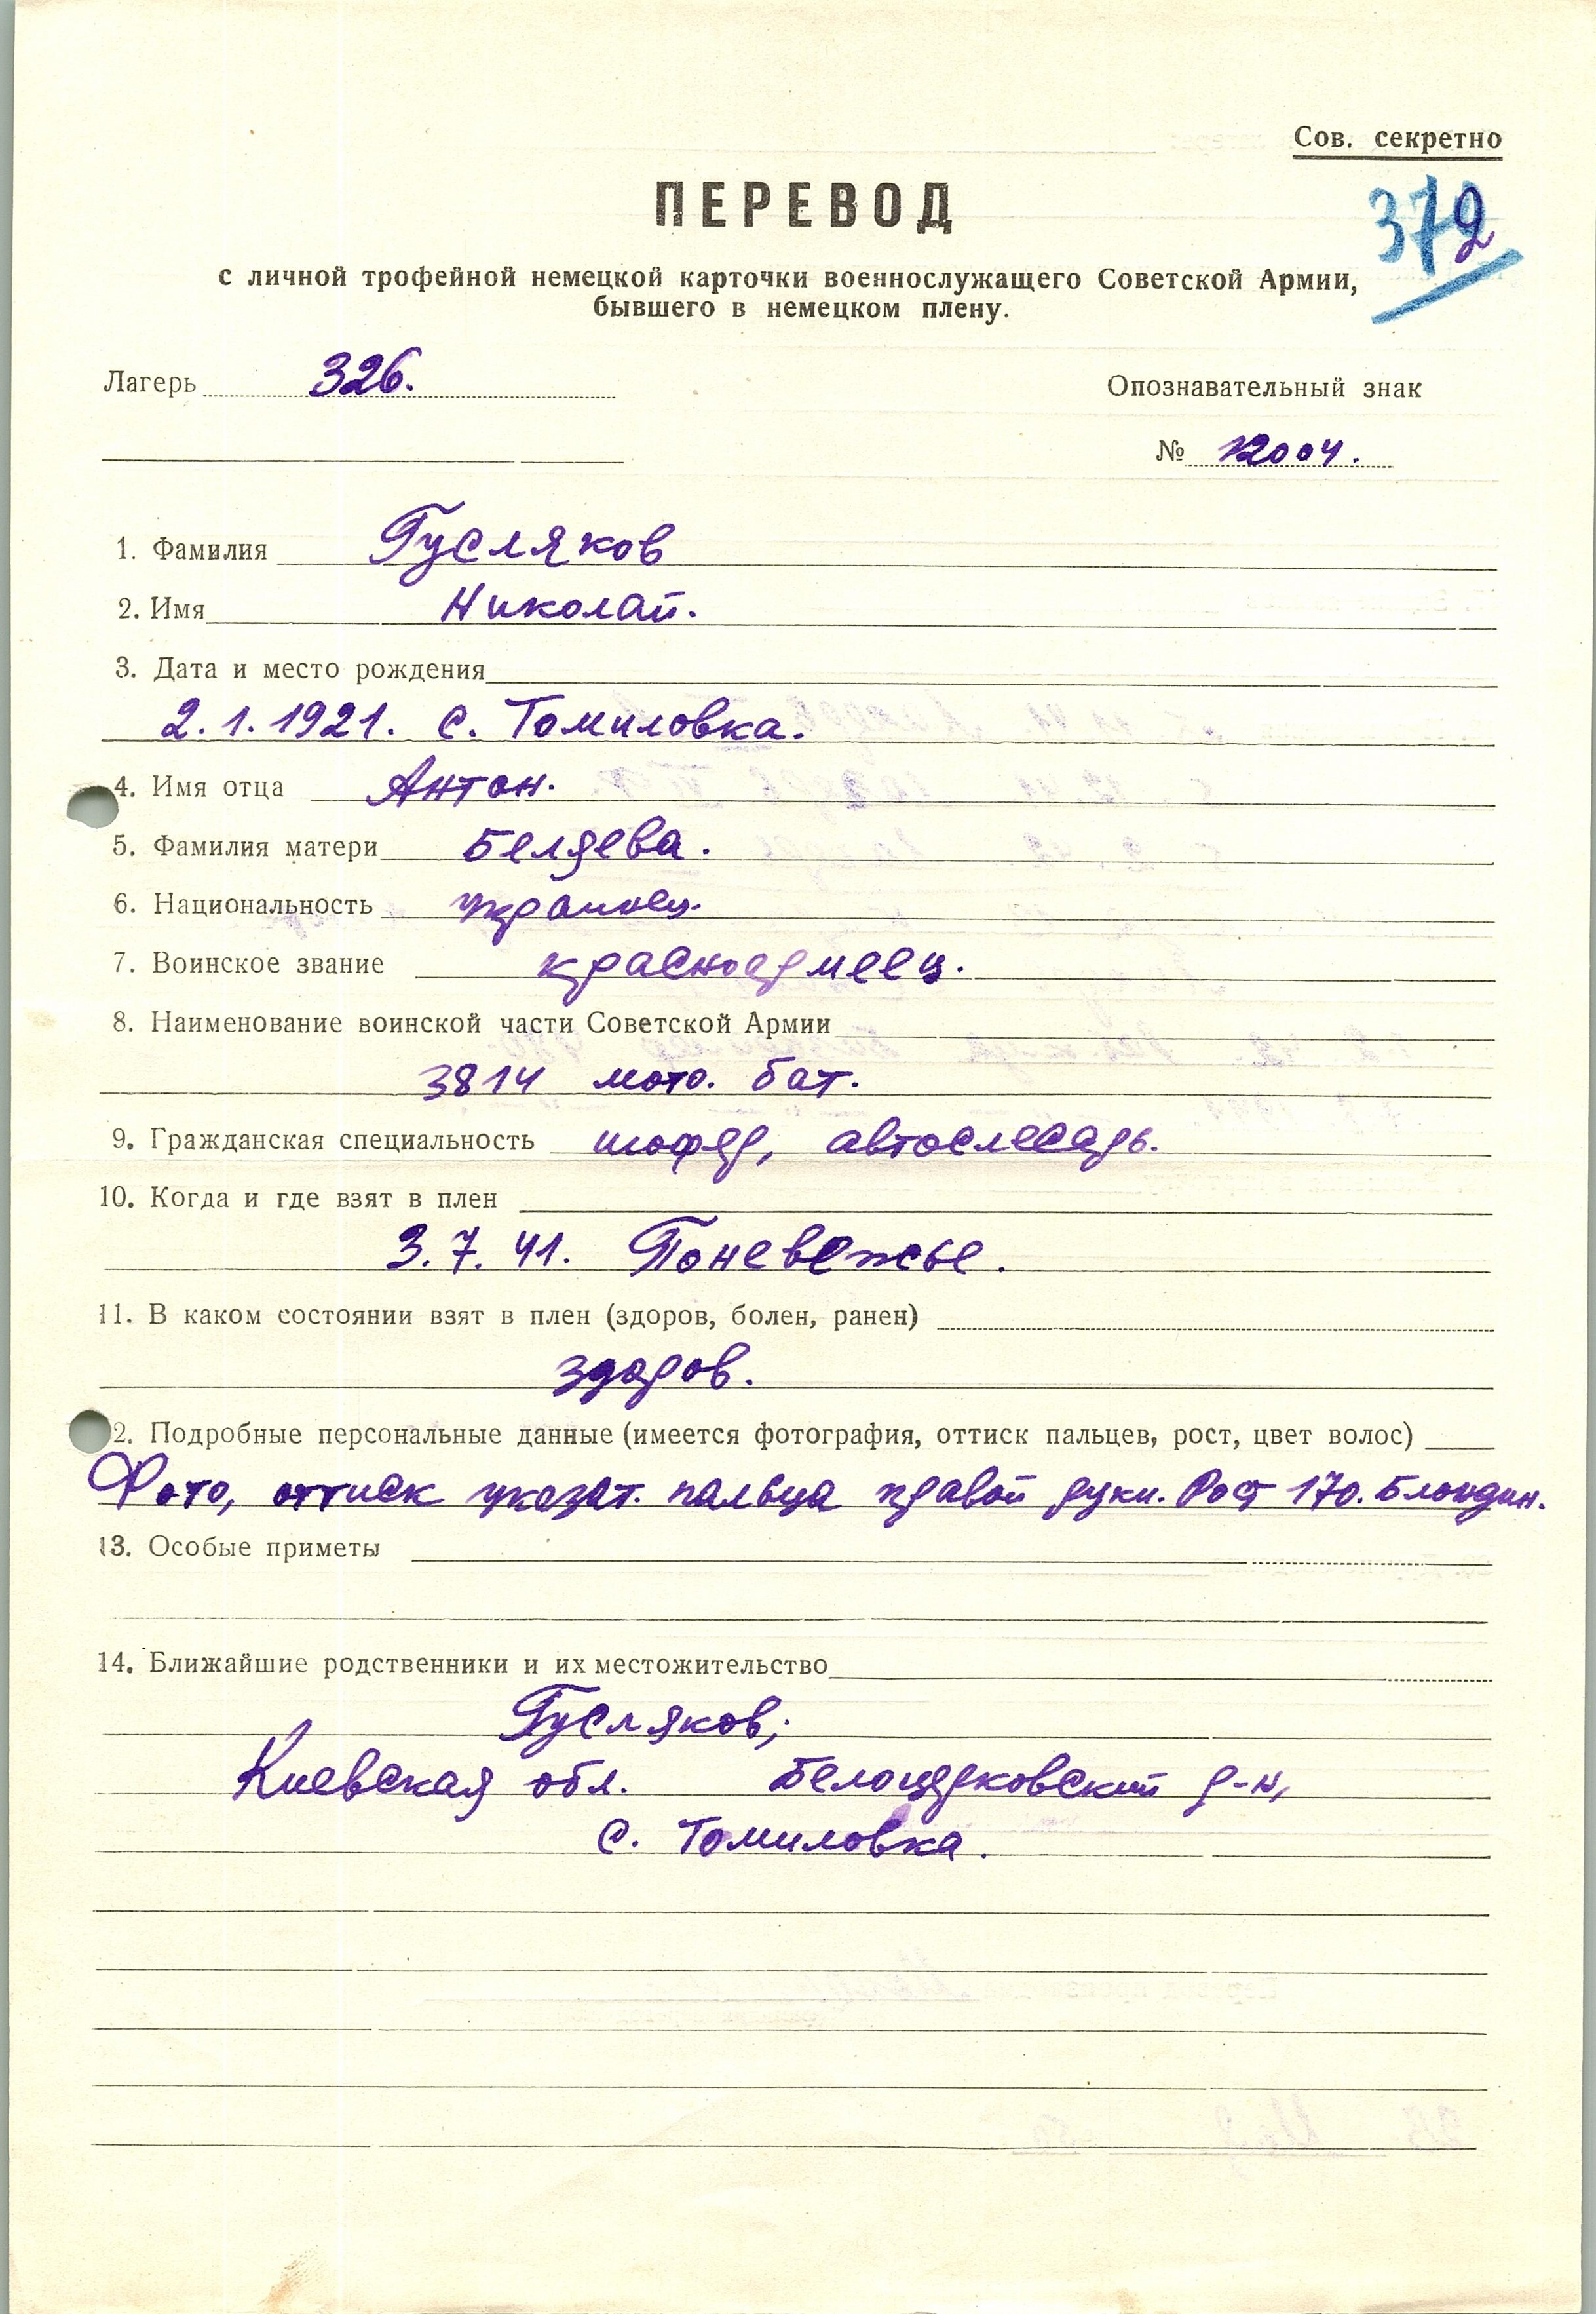 Сов. секретно
ПЕРЕВОД
372
с личной трофейной немецкой карточки военнослужащего Советской Армии,
бывшего в немецком плену.
Лагерь 326.
Опознавательный знак
№ 12004.
1. Фамилия Гусляков
2. Имя Николай.
3. Дата и место рождения
2.1.1921. с. Томиловка.
4. Имя отца Антон.
5. Фамилия матери Беляева.
6. Национальность украинец.
7. Воинское звание красноармеец.
8. Наименование воинской части Советской Армии
3814 мото. бат.
9. Гражданская специальность шофер, автослесарь.
10. Когда и где взят в плен
3.7.41. Поневежье.
11. В каком состоянии взят в плен (здоров, болен, ранен)
здоров.
2. Подробные персональные данные (имеется фотография, оттиск пальцев, рост, цвет волос)
Фото, оттиск указат. пальца правой руки. Рост 170. Блондин.
13. Особые приметы
14. Ближайшие родственники и их местожительство
Гусляков;
Киевская обл. Белоцерковский р-н,
с. Томиловка.